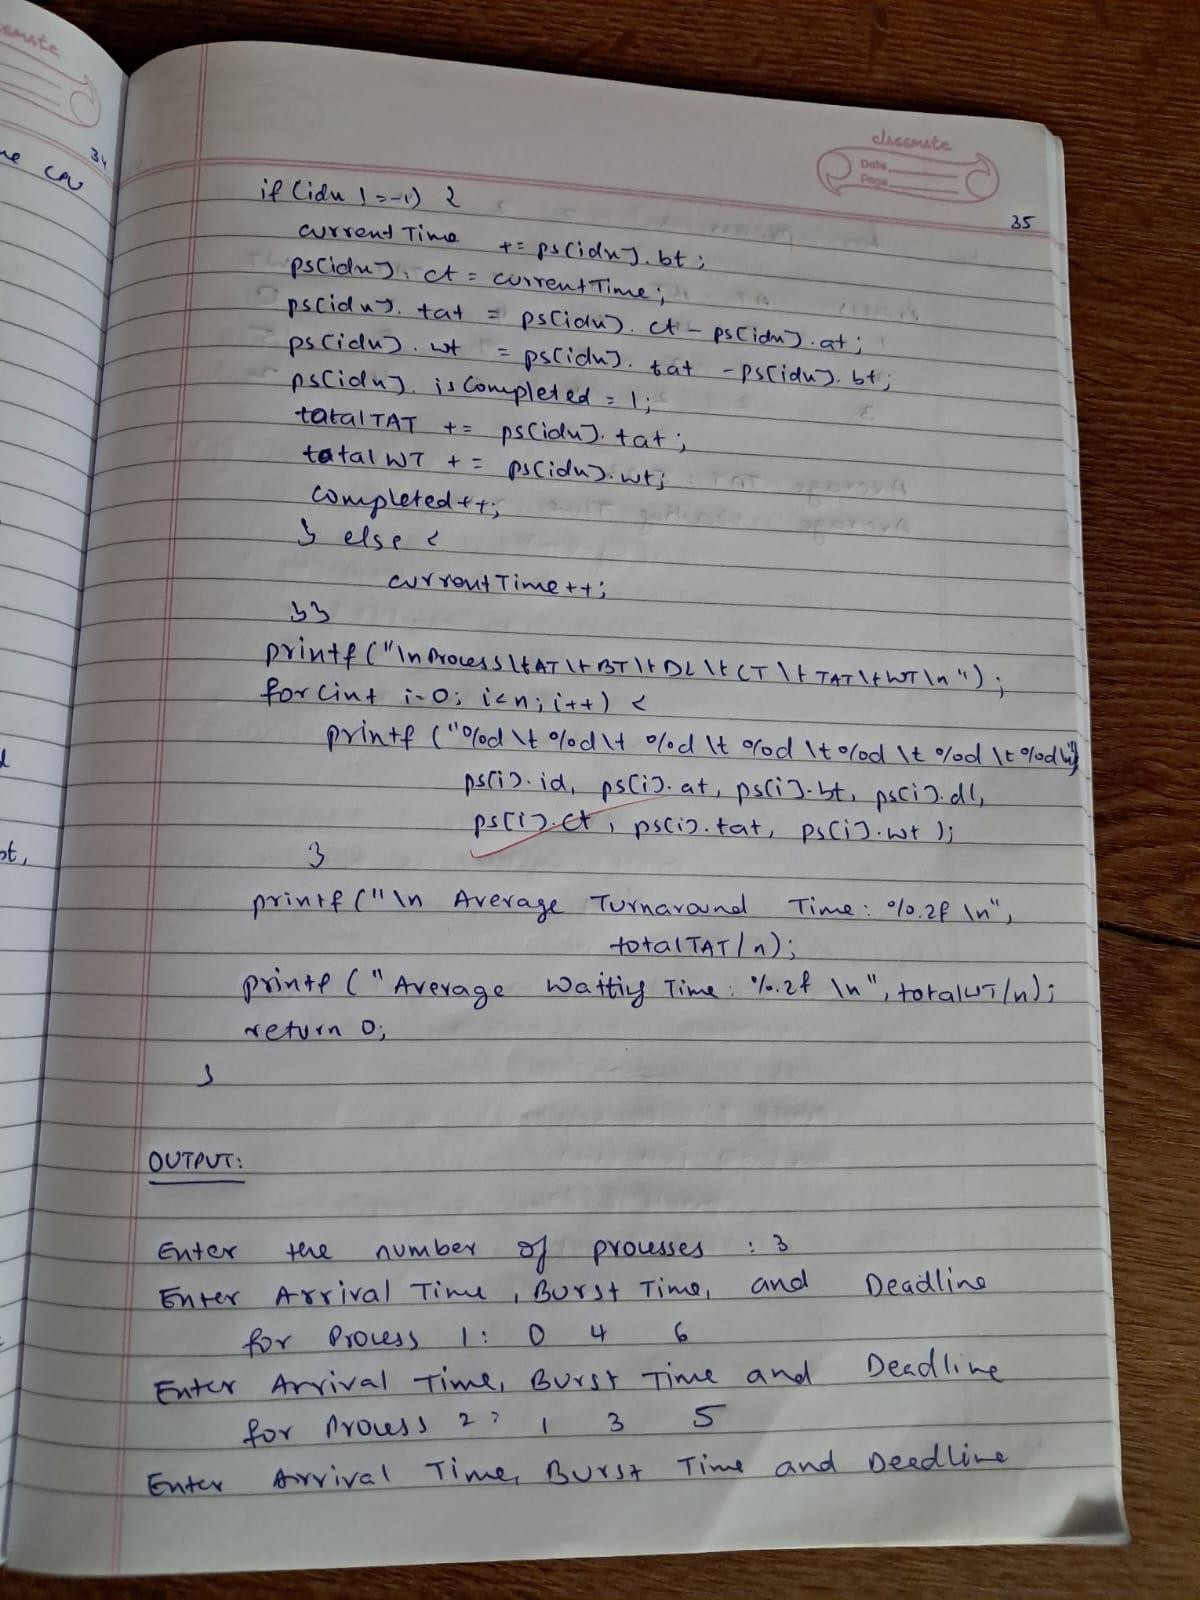 classmate
Date
Page
35
if (idn != -1) {
currentTime += ps[idn].bt;
ps[idn].ct = currentTime;
ps[idn].tat = ps[idn].ct - ps[idn].at;
ps[idn].wt = ps[idn].tat - ps[idn].bt;
ps[idn].isCompleted = 1;
totalTAT += ps[idn].tat;
totalWT += ps[idn].wt;
completed++;
} else {
currentTime++;
}}
printf("\nProcess\tAT\tBT\tDL\tCT\tTAT\tWT\n");
for(int i=0; i<n; i++) {
printf("%d\t%d\t%d\t%d\t%d\t%d\t%d\n",
ps[i].id, ps[i].at, ps[i].bt, ps[i].dl,
ps[i].ct, ps[i].tat, ps[i].wt);
}
printf("\n Average Turnaround Time: %.2f \n",
totalTAT/n);
printf("Average Waiting Time: %.2f \n", totalWT/n);
return 0;
}
OUTPUT:
Enter the number of processes : 3
Enter Arrival Time, Burst Time, and Deadline
for Process 1: 0 4 6
Enter Arrival Time, Burst Time and Deadline
for Process 2: 1 3 5
Enter Arrival Time, Burst Time and Deadline
classmate
34
me CPU